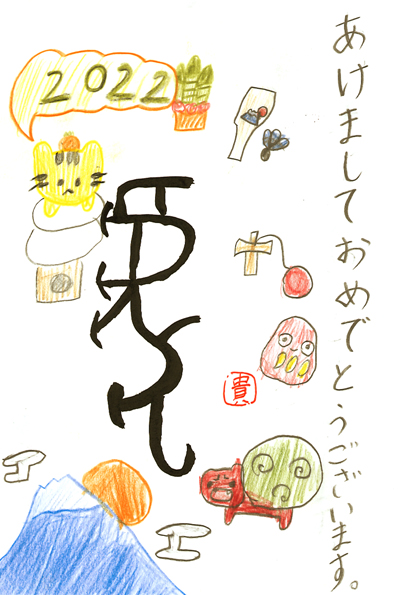 あけましておめでとうございます。
2022
貴